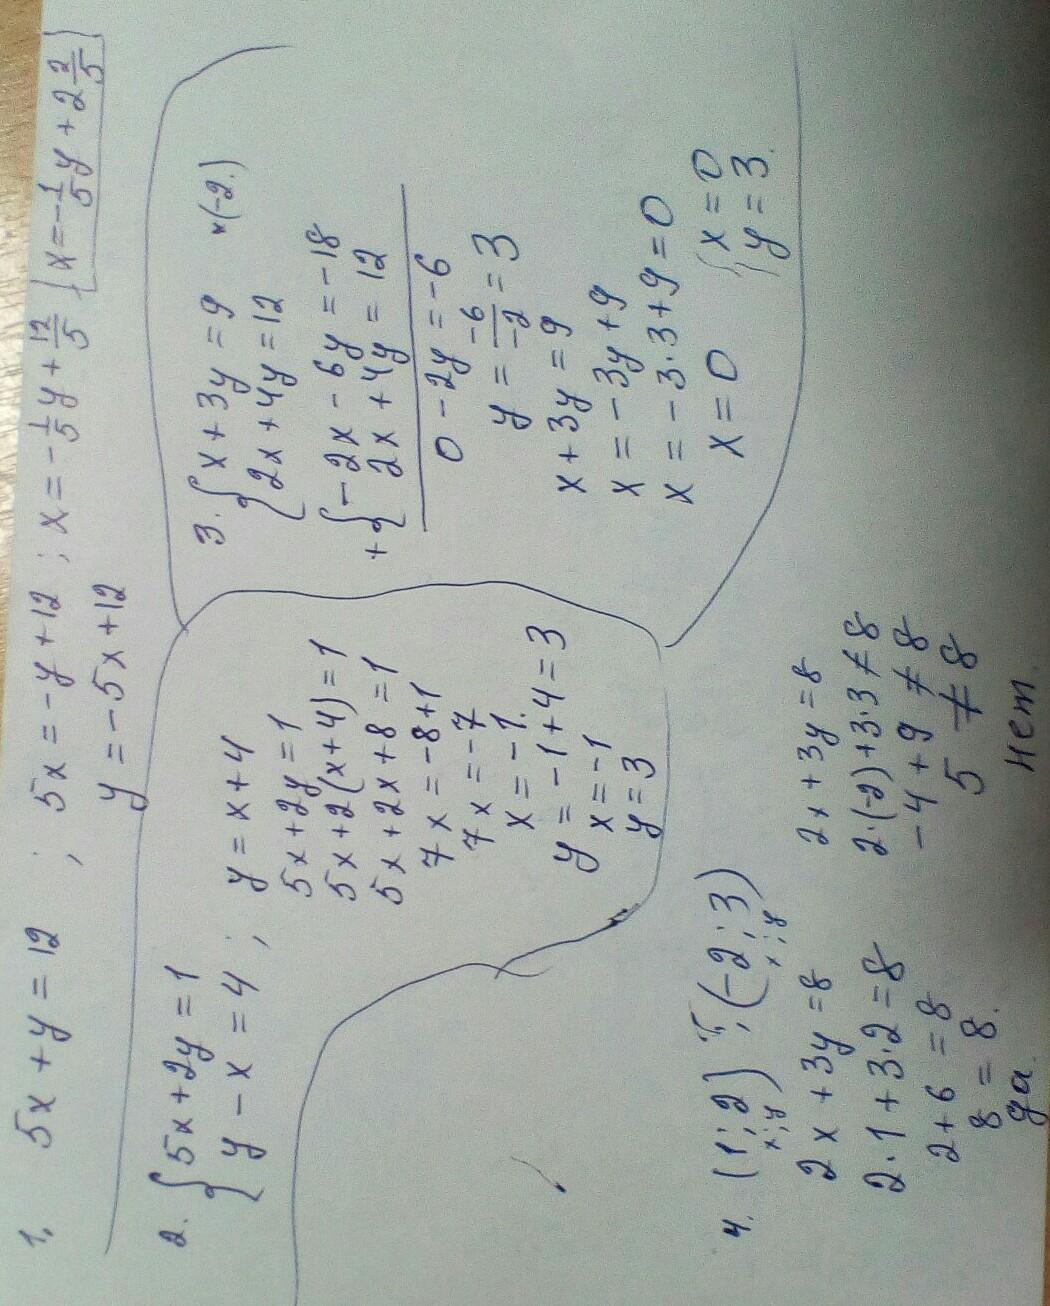 1. 5x + y = 12 ; 5x = -y + 12 ; x = -1/5 y + 12/5 {x = -1/5 y + 2 2/5}
y = -5x + 12
2. { 5x + 2y = 1
y - x = 4 ;
y = x + 4
5x + 2y = 1
5x + 2(x + 4) = 1
5x + 2x + 8 = 1
7x = -8 + 1
7x = -7
x = -1.
y = -1 + 4 = 3
x = -1
y = 3
3. { x + 3y = 9 ×(-2.)
2x + 4y = 12
+ { -2x - 6y = -18
2x + 4y = 12
0 - 2y = -6
y = -6/-2 = 3
x + 3y = 9
x = -3y + 9
x = -3·3 + 9 = 0
x = 0 { x = 0
y = 3.
4. (1; 2) ; (-2; 3)
x; y x; y
2x + 3y = 8
2·1 + 3·2 = 8
2 + 6 = 8
8 = 8.
да
2x + 3y = 8
2·(-2) + 3·3 ≠ 8
-4 + 9 ≠ 8
5 ≠ 8
нет